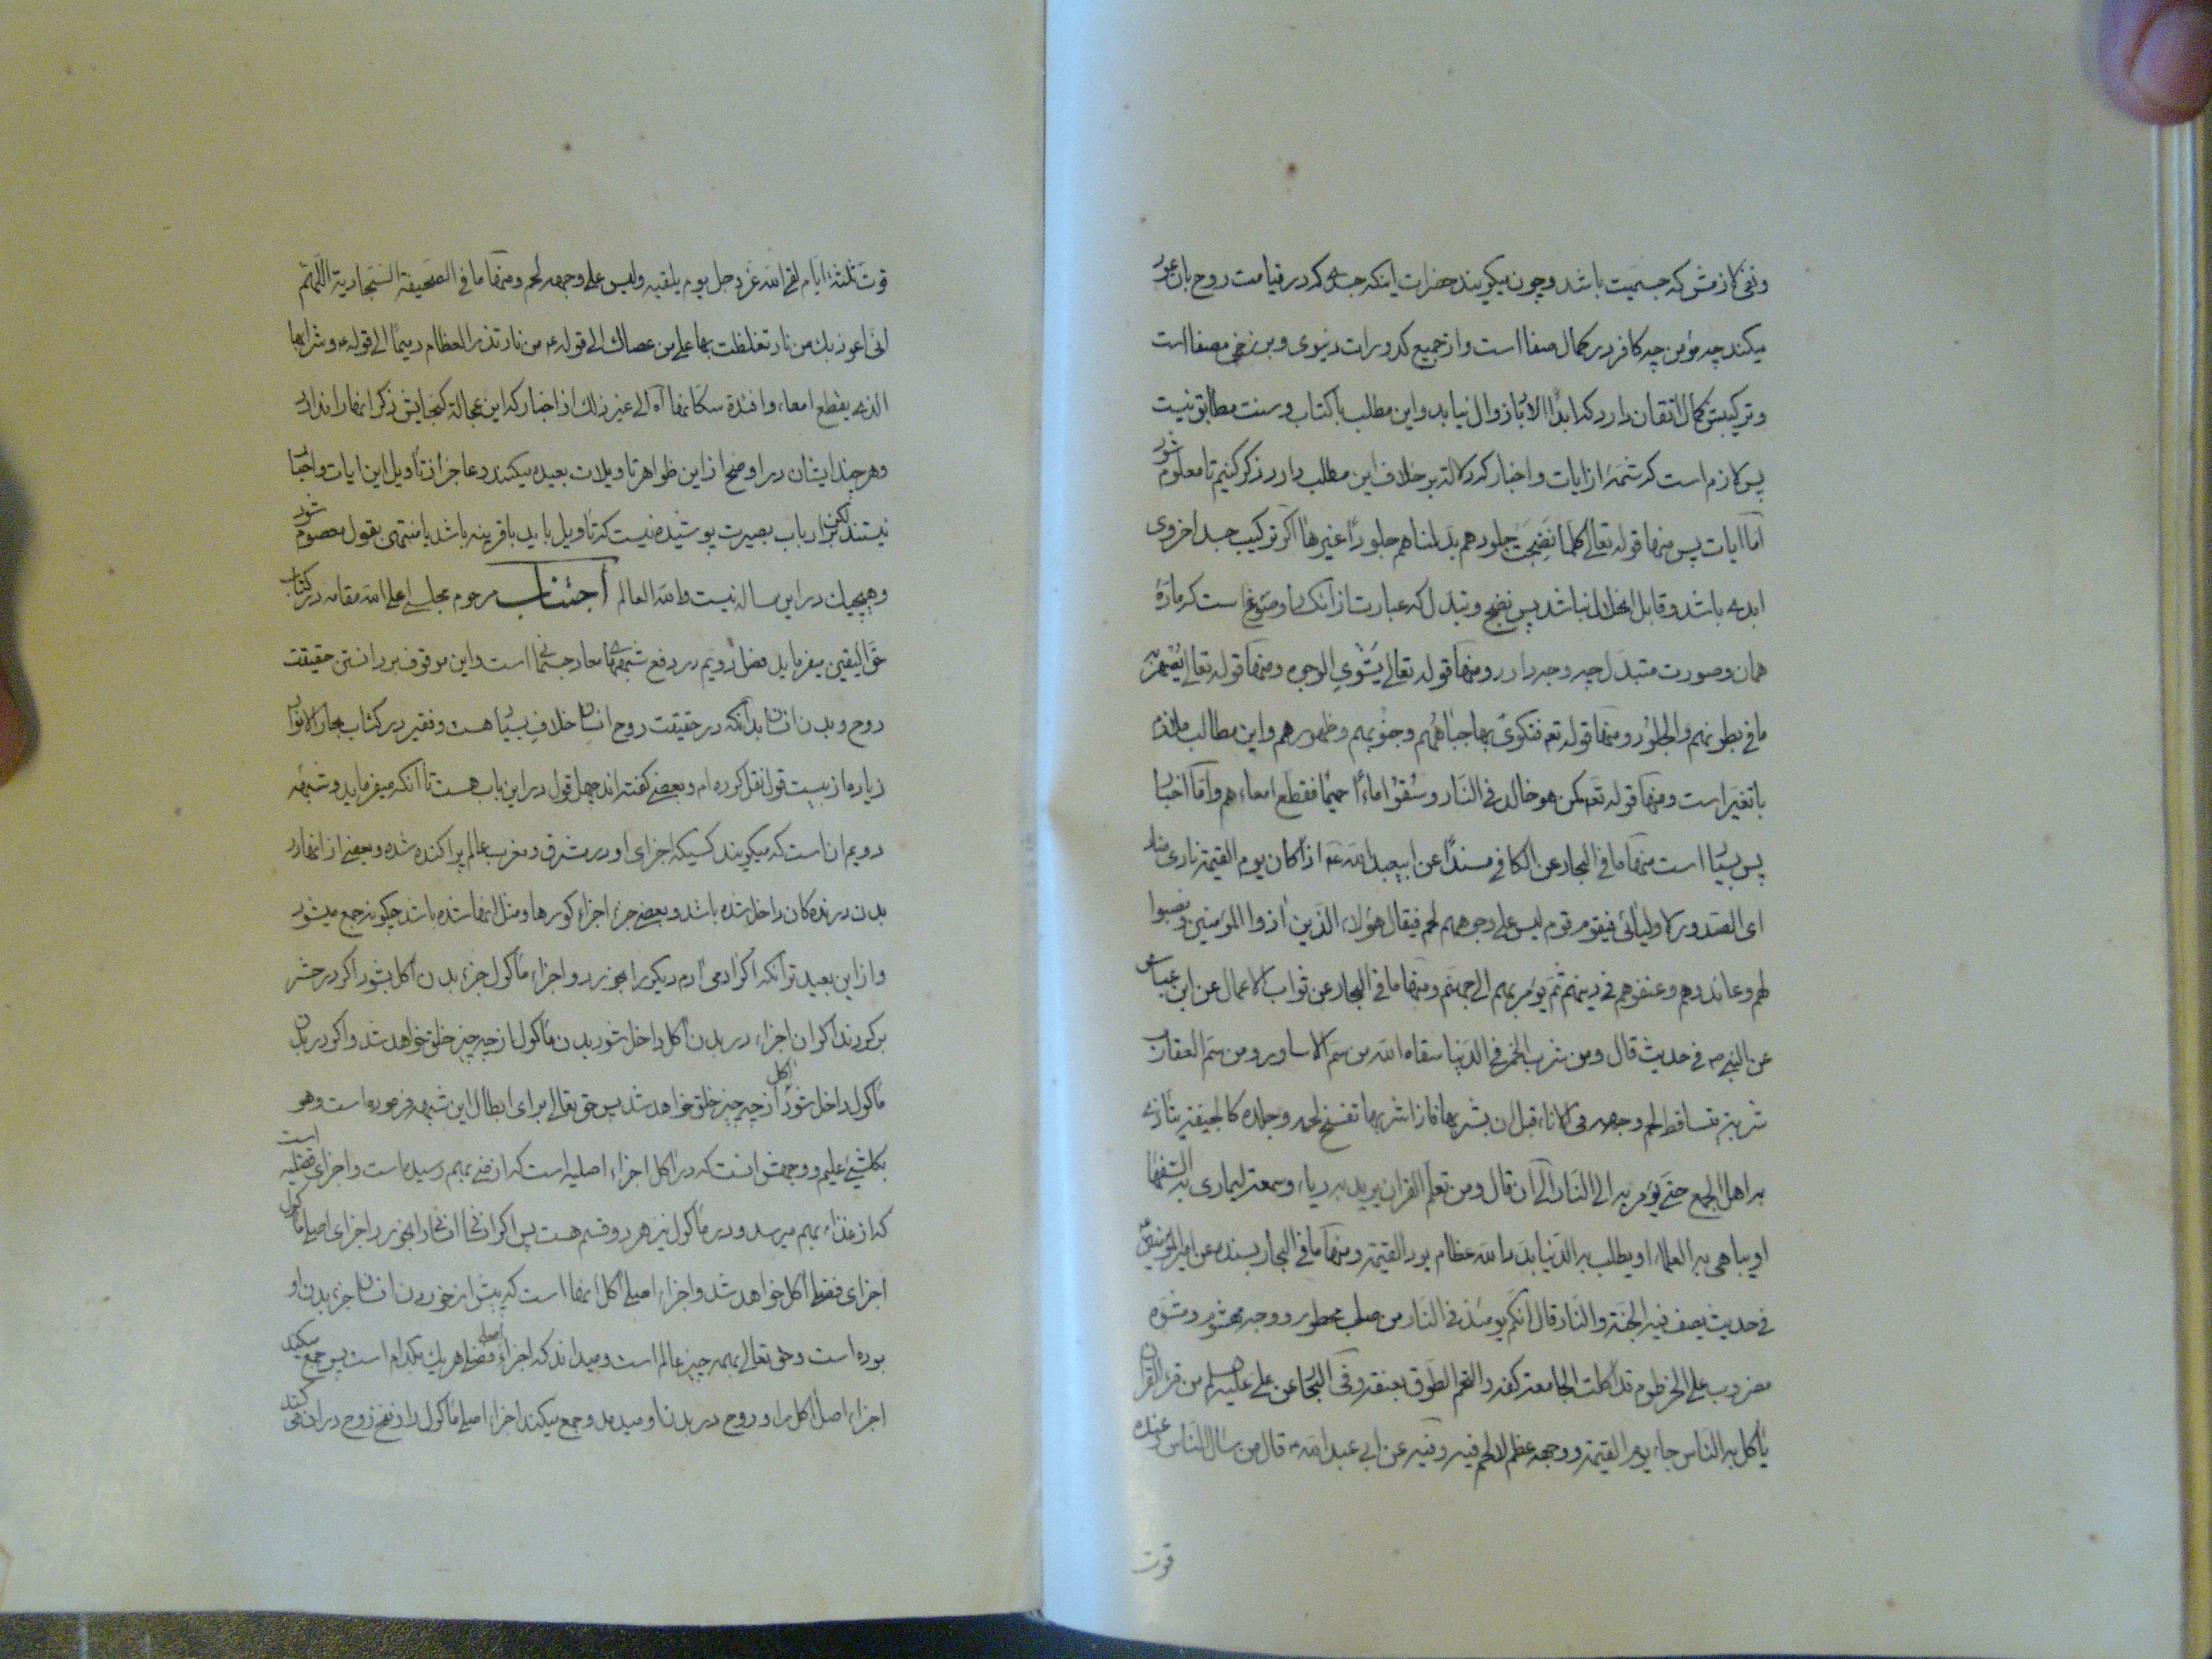 ونفی لازمش که جسمیت باشد وچون میکویند حضرات اینکه جسدی که در قیامت روح بان عود
میکند چه مؤمن چه کافر در کمال صفا است واز جمیع کدورات دنیوی و برزخی مصفا است
وترکیبش کمال اتقان دارد که ابدًا الاباد زوال نیابد واین مطلب با کتاب وسنت مطابق نیست
پس لازم است که شمهٔ از ایات واخبار که دلالة بر خلاف این مطلب دارد ذکر کنیم تا معلوم شود
امّا ایات پس منها قوله تعالی کلما نَضِجَت جلودهم بدّلناهم جلودًا غیرها اکر ترکیب جسد اخروی
ابدی باشد وقابل انحلال نباشد پس نضج و تبدل که عبارت از انکه است که مادّهٔ
همان وصورت متبدّل چه وجه دارد ومنها قوله تعالی یَشْوِی الوجوه ومنها قوله تعالی یُصْهَر به
ما فی بطونهم والجلوُد ومنها قوله تعه فتکوی بها جباههُم وجنوُبهم وظهورهم واین مطالب
با تغیّر است ومنها قوله تعه کمن هو خالد فی النّار وسُقوُا ماءًا حمیمًا فقطّع امعاءهم وامّا اخبا
پس بسیا است منها ما فی البحار عن الکافی مسندًا عن ابیعبدالله عه اذا کان یوم القیمة نادی مناد
ای الصّدود لاولیائی فیقوم قوم لیس علی وجوههم لحم فیقال هؤلاء الّذین اذوا المؤمنین ونصبوا
لهم وعاندوهم وعنفوهم فی دینهم ثمّ یؤمر بهم الی جهنّم ومنها ما فی البحار عن ثواب الاعمال عن ابن عباس
عن النّبی ص فی حدیث قال ومن شرب الخمر فی الدّنیا سقاه الله من سمّ الاساود ومن سمّ العقارب
شربة یتساقط لحم وجهه فی الاناء قبل ان یشربها فاذا شربها تفسّخ لحمه وجلده کالجیفة یتأذی
به اهل الجمع حتّی یؤمر به الی النّار الی ان قال ومن تعلّم القران یرید به ریاء وسمعة لیماری به السّفها
او یباهی به العلماء او یطلب به الدّنیا بدّد الله عظامه یوم القیمة ومنها ما فی البحار بسنده عن امیرالمؤمنین
فی حدیث یصف فیه الجنّة والنّار قال انکم یومئذ فی النّار من صلب محطوم ووجه مهشوم ومشوّه
مضروب علی الخرطوم قد اکلت الجامعة کفه والتحم الطّوق بعنقه وفی البحا عن علی علیه السلم من قرء القران
یأکل به النّاس جاء یوم القیمة ووجهه عظم لا لحم فیه وفیه عن ابی عبدالله قال من سأل النّاس وعنده
قوت
قوت ثلثة ایّام لقی الله عزّ وجلّ یوم یلقیه ولیس علی وجهه لحم ومنها ما فی الصّحیفة السّجّادیة اللّهمّ
انّی اعوذ بک من نار تغلظت بها علی من عصاک الی قوله ع من نار تذر العظام رمیمًا الی قوله ع وشرابها
الذی یقطع امعاء وافئدة سکّانها آه الی غیر ذلک از اخبار که این عجاله کنجایش ذکر انها را ندارد
وهر چند ایشان در اوضح از این ظواهر تاویلات بعیده میکنند وعاجز از تأویل این ایات واخبا
نیستند لکن بر ارباب بصیرت پوشیده نیست که تاویل باید با قرینه باشد یا منتهی بقول معصوم شود
وهیچیک در این مساله نیست والله العالم اجتناب مرحوم مجلسی اعلی الله مقامه در کتاب
حقّ الیقین میفرماید فصل دویم در دفع شبههای معاد جسمانی است واین موقوف بر دانستن حقیقت
روح وبدن انسان بدانکه در حقیقت روح انسان خلاف بسیا هست وفقیر در کتاب بحار الانوار
زیاده از بیست قول نقل کرده ام وبعضی کفته اند چهل قول در این باب هست تا آنکه میفرماید وشبههٔ
دویم ان است که میکویند کسیکه اجزای او در مشرق ومغرب عالم پراکنده شده وبعضی از انها در
بدن درنده کان داخل شده باشد وبعضی جزء اجزاء کوزها ومثل انها شده باشد چکونه جمع میشود
واز این بعیدتر آنکه اکر ادمی ادم دیکر را بخورد واجزاء مأکول جزء بدن اکل بشود اکر در حشر
برکردند اکر ان اجزاء در بدن اکل داخل شود بدن مأکول از چه چیز خلق خواهد شد واکر در بدن
مأکول داخل شود اکل از چه چیز خلق خواهد شد پس حق تعالی برای ابطال این شبهه فرموده است وهو
بکلشیئ علیم ووجهش انست که در اکل اجزاء اصلیه است که از منی بهم رسیده است واجزای فضلیه است
که از غذاء بهم میرسد ودر مأکول نیز هر دو قسم هست پس اکر انسانی انسانی را بخورد اجزای اصلی مأکول
اجزای فضلی اکل خواهد شد واجزاء اصلی اکل انها است که پیش از خوردن انسان جزء بدن او
بوده است وحق تعالی بهمه چیز عالم است ومیداند که اجزاء اصلی وفضلی هر یک کدام است پس جمع میکند
اجزاء اصل اکل را وروح در بدن او میدمد وجمع میکند اجزاء اصلی مأکول را ونفخ روح در ان می کند